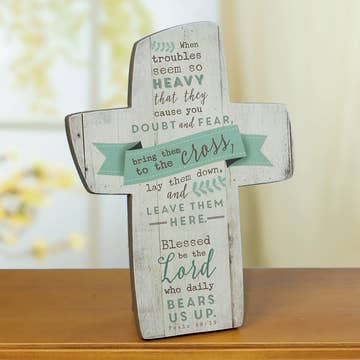 When
troubles
seem so
HEAVY
that they
cause you
DOUBT and FEAR,
bring them
to the CROSS,
lay them down,
and
LEAVE THEM
HERE.
Blessed
be the
Lord
who daily
BEARS
US UP.
Psalm 68:19